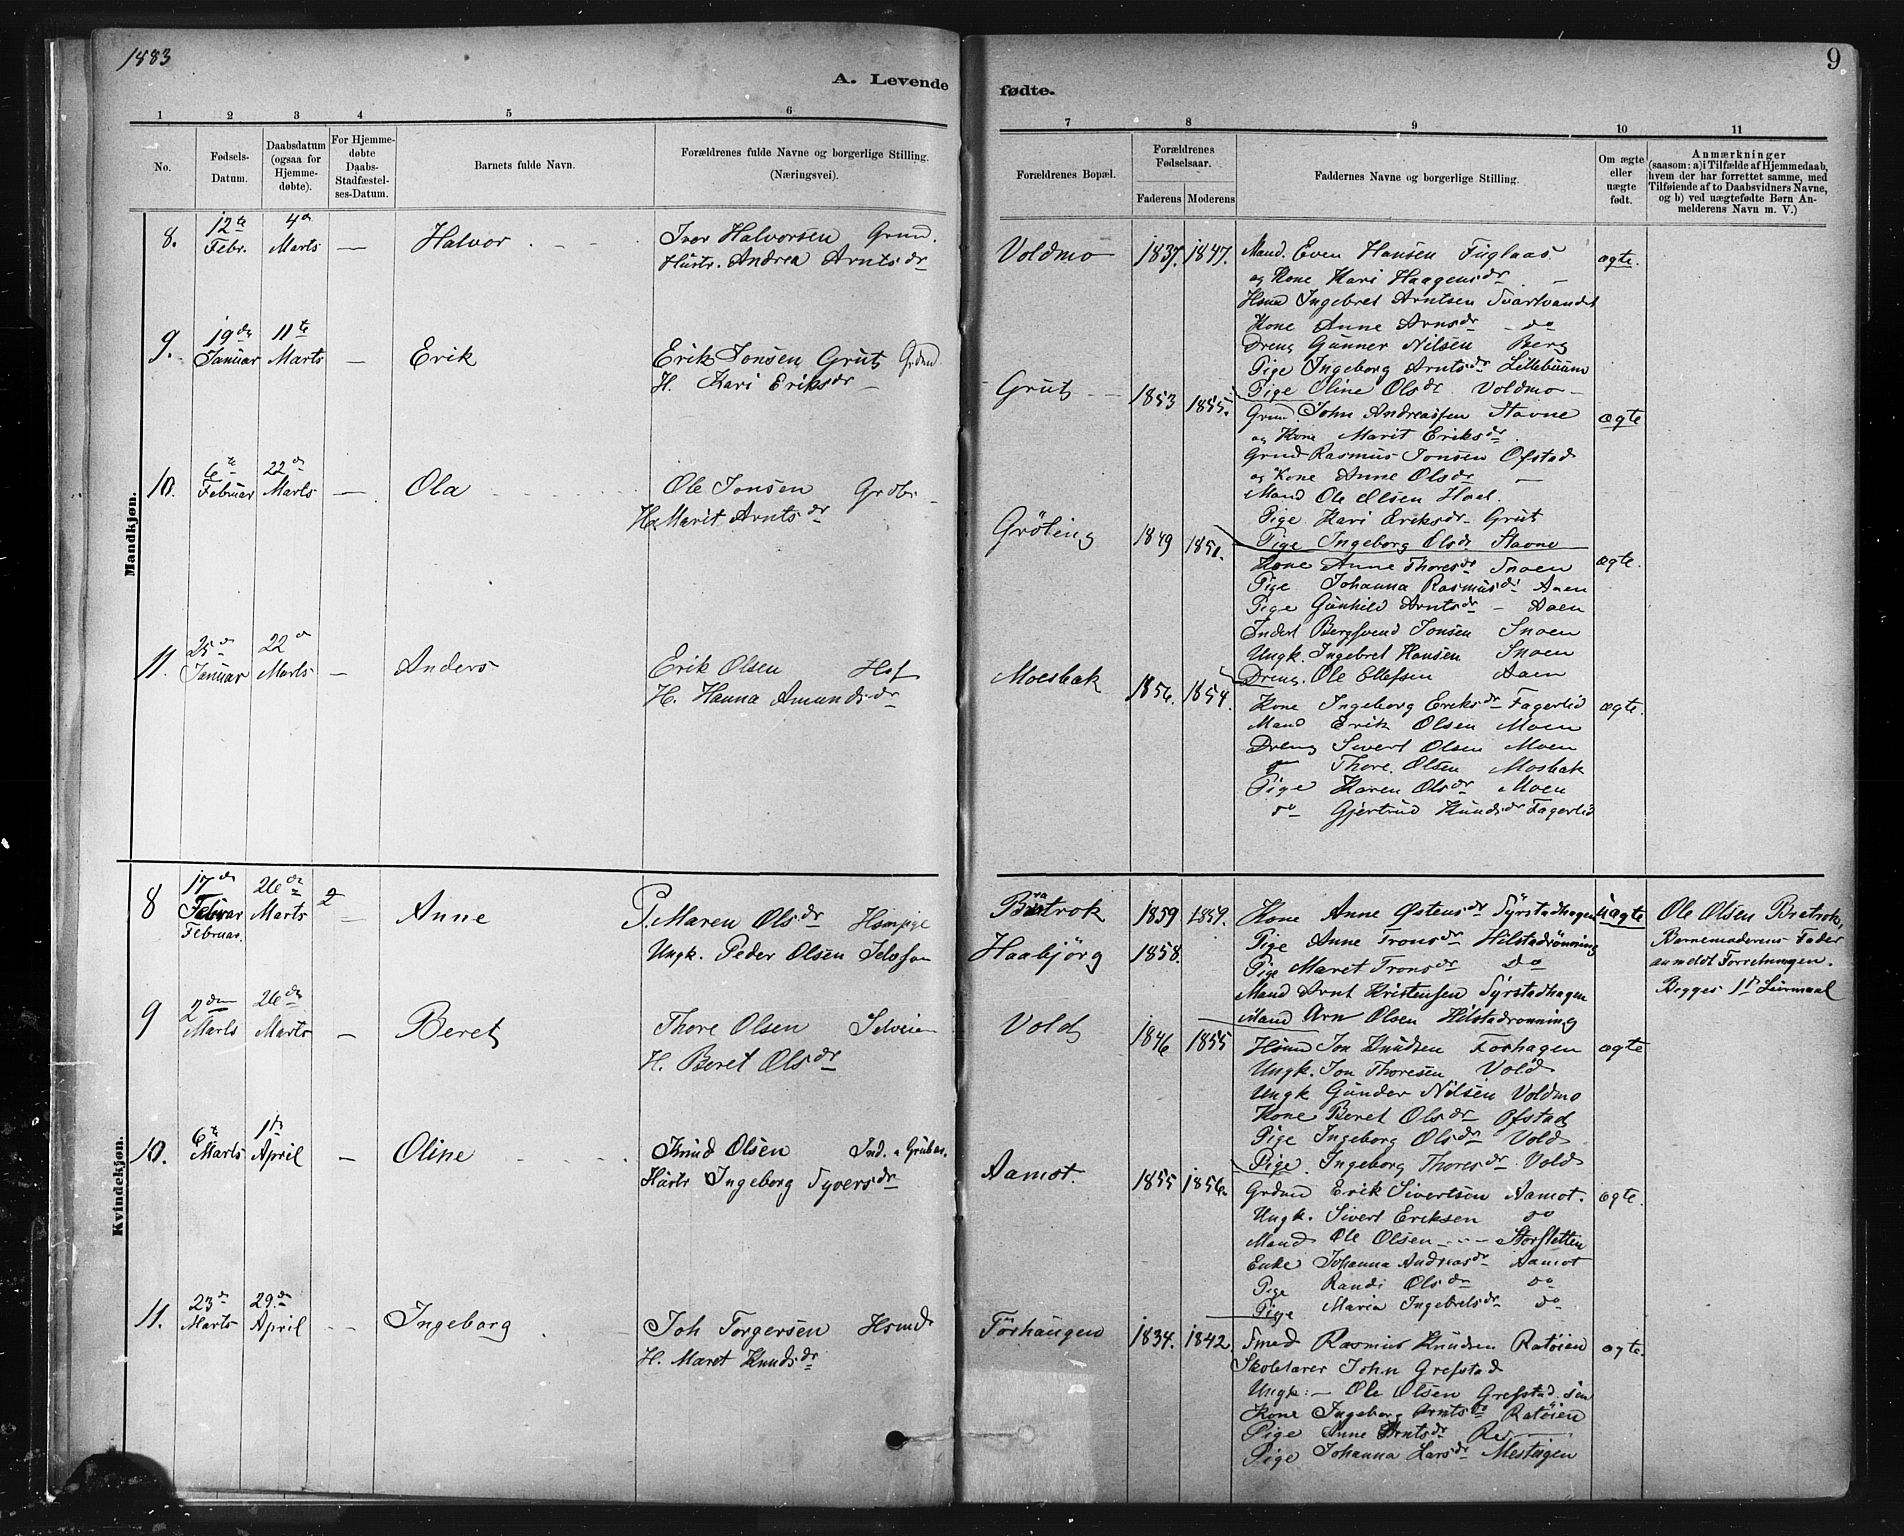 1883
9
A. Levende
fødte.
1 2 3 4 5 6
7 8 9 10 11
No.
Fødsels-Datum.
Daabsdatum (ogsaa for Hjemmedøbte).
For Hjemmedøbte Daabs-Stadfæstelses-Datum.
Barnets fulde Navn.
Forældrenes fulde Navne og borgerlige Stilling. (Næringsvei).
Forældrenes Bopæl.
Forældrenes Fødselsaar.
Faderens Moderens
Faddernes Navne og borgerlige Stilling.
Om ægte eller uægte født.
Anmærkninger
(saasom: a) i Tilfælde af Hjemmedaab,
hvem der har forrettet samme, med
Tilføiende af to Daabsvidners Navne,
og b) ved uægtefødte Børn Anmelderens Navn m. V.)
Mandkjøn.
8. 12te Febr. 4de Marts — Halvor
Ivor Halvorsen Grmd.
Hustr. Andrea Arntsdr
Voldmo 1837. 1847.
Mand. Even Hansen Fuglaas
og Kone Kari Haagensdr —
Hsmd Ingebret Arntsen Svartvandet
Kone Anne Arnsdr — do
Dreng Gunner Nilsen Berg
Pige Ingeborg Arntsdr Lillebuum
Pige Oline Olsdr Voldmo
ægte.
9. 19de Januar 11te Marts — Erik
Erik Jonsen Grut Grdmd
H. Kari Eriksdr —
Grut — 1853 1855.
Grmd. John Andreassen Stavne
og Kone Marit Eriksdr
Grmd Rasmus Jonsen Ofstad
og Kone Anne Olsdr —
Mand Ole Olsen Hoel.
Pige Kari Eriksdr Grut
Pige Ingeborg Olsdr Stavne
ægte
10. 6te Februar 22de Marts — Ola
Ole Jonsen
H. Marit Arntsdr
Grøting 1849 1851.
Kone Anne Thoresdr Snoen
Pige Johanna Rasmusdr Aaen
Pige Gunhild Arntsdr — Aaen
Inderst Bergsvend Jonsen Snoen
Ungk. Ingebret Hansen Snoen
Dreng. Ole Ellefsen Aaen
ægte.
11. 25de Januar 22de Marts — Anders
Erik Olsen
H. Hanna Amundsdr
Moesbak 1856. 1854.
Kone Ingeborg Eriksdr Fagerlid
Mand Erik Olsen Moen
Dreng Sivert Olsen Moen
do Thore Olsen Mosbak
Pige Karen Olsdr Moen
do Gjertrud Knudsdr Fagerlid
ægte.
Kvindekjøn.
8 17de Februar Februar. 26de Marts — Anne
P. Maren Olsdr Hsmpige
Ungk. Peder Olsen
Bratrok 1859 1859.
Haabjørg 1858.
Kone Anne Østensdr Syrstadhagen
Pige Anne Tronsdr Hilstadrønning
Pige Maret Tronsdr do
Mand Arnt Kristensen Syrstadhagen
Mand Arn Olsen Hilstadrønning
uægte
Ole Olsen Bratrok,
Barnemoderens Fader
anmeldt Forretningen.
Begges 1ste Leiermaal
9 2den Marts 26de Marts — Beret
Thore Olsen Selveier
H. Beret Olsdr
Vold 1846 1855
Hsmd Jon Knudsen
Ungk. Jon Thoresen Vold
Ungk Gunder Nilsen Voldmo
Kone Beret Olsdr Ofstad
Pige Ingeborg Olsdr Vold
Pige. Ingeborg Thoresdr Vold
ægte
10. 6te Marts 1ste April — Oline
Knud Olsen Ind. & Grubea.
Hustr Ingeborg Syversdr
Aamot. 1855 1856.
Grdmd Erik Sivertsen Aamot.
Ungk. Sivert Eriksen do
Mand Ole Olsen Storsletten
Enke Johanna Andreasdr Aamot
Pige Randi Olsdr do
Pige Maria Ingebretsdr do
ægte.
11. 23de Marts 29de April — Ingeborg
Joh Torgersen Hsmd
H. Maret Knudsdr
Torhaugen 1834. 1842
Smed Rasmus Knudsen Ratøien
Skolelærer John Grefstad
Ungk: — Ole Olsen Grefstad
Kone Ingeborg Arntsdr Ratøien
Pige Anne Arntsdr
Pige Johanna Larsdr
ægte.